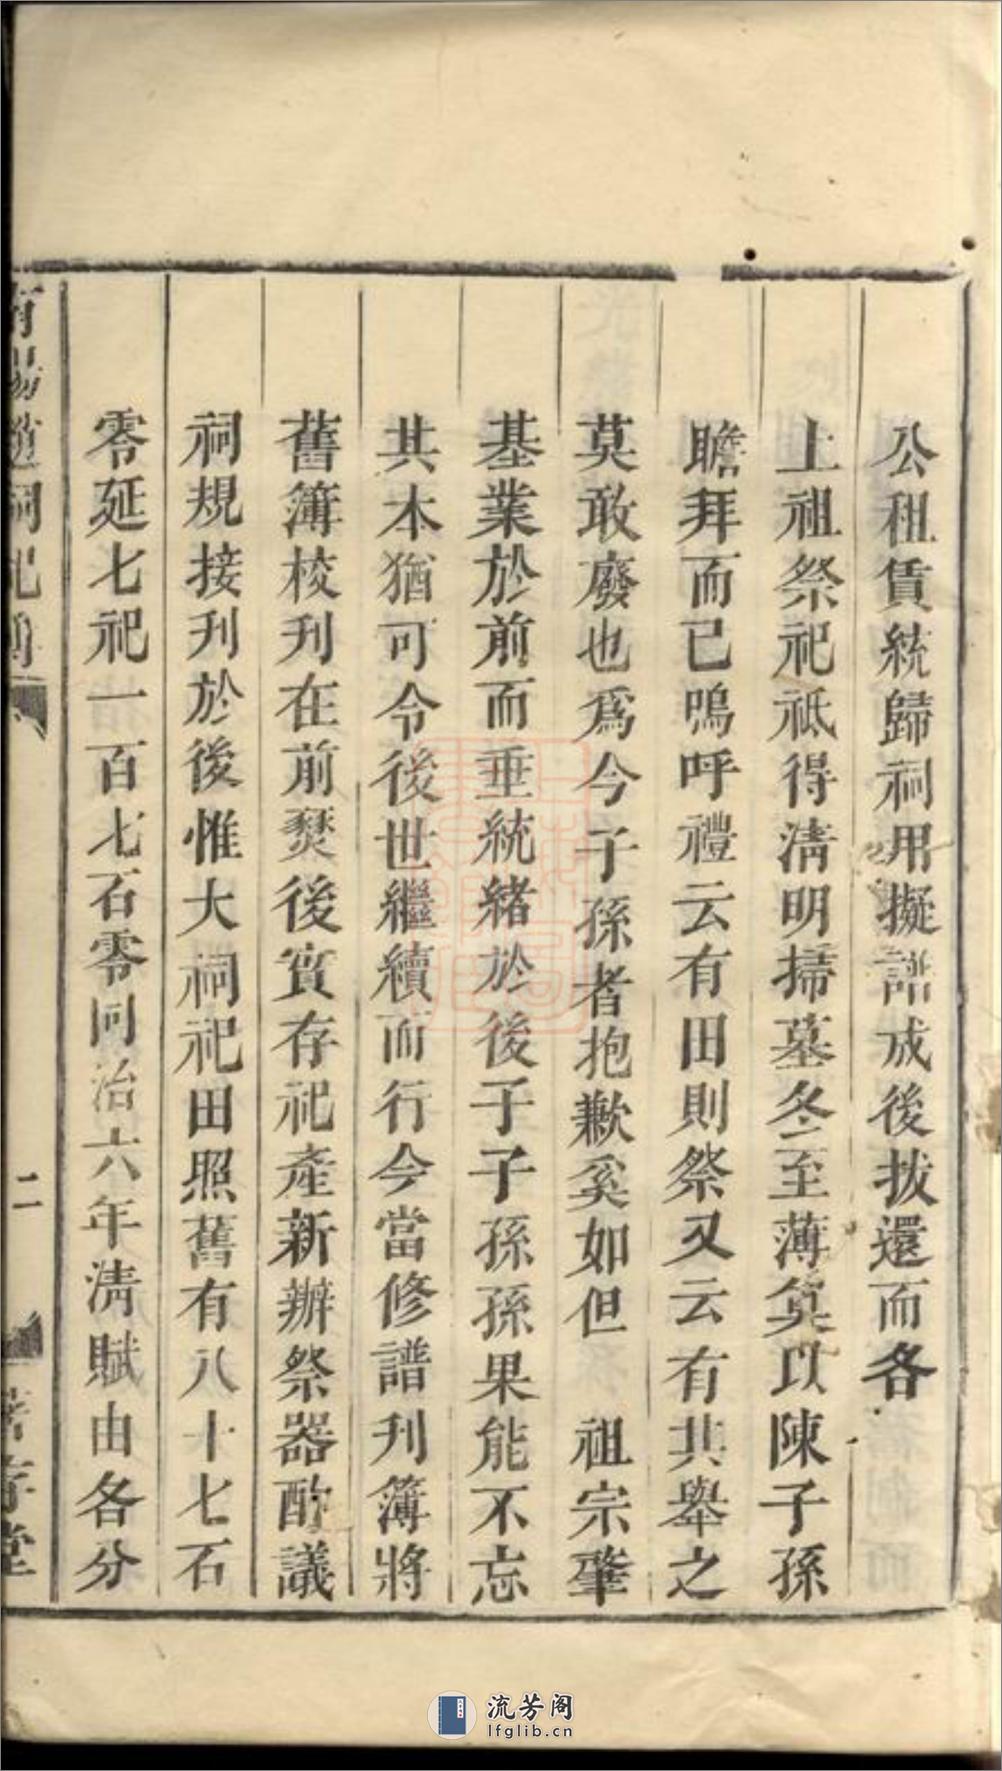 公租賃統歸祠用擬譜成後拔還而各
上祖祭祀祗得淸明掃墓冬至薄奠以陳子孫
瞻拜而已嗚呼禮云有田則祭又云有其舉之
莫敢廢也爲今子孫者抱歉奚如但　祖宗肇
基業於前而垂統緒於後子子孫孫果能不忘
其本猶可令後世繼續而行今當修譜刊簿將
舊簿校刊在前燹後實存祀產新辦祭器酌議
祠規接刊於後惟大祠祀田照舊有八十七石
零延七祀一百七石零同治六年淸賦由各分
二
流芳阁
lfglib.cn